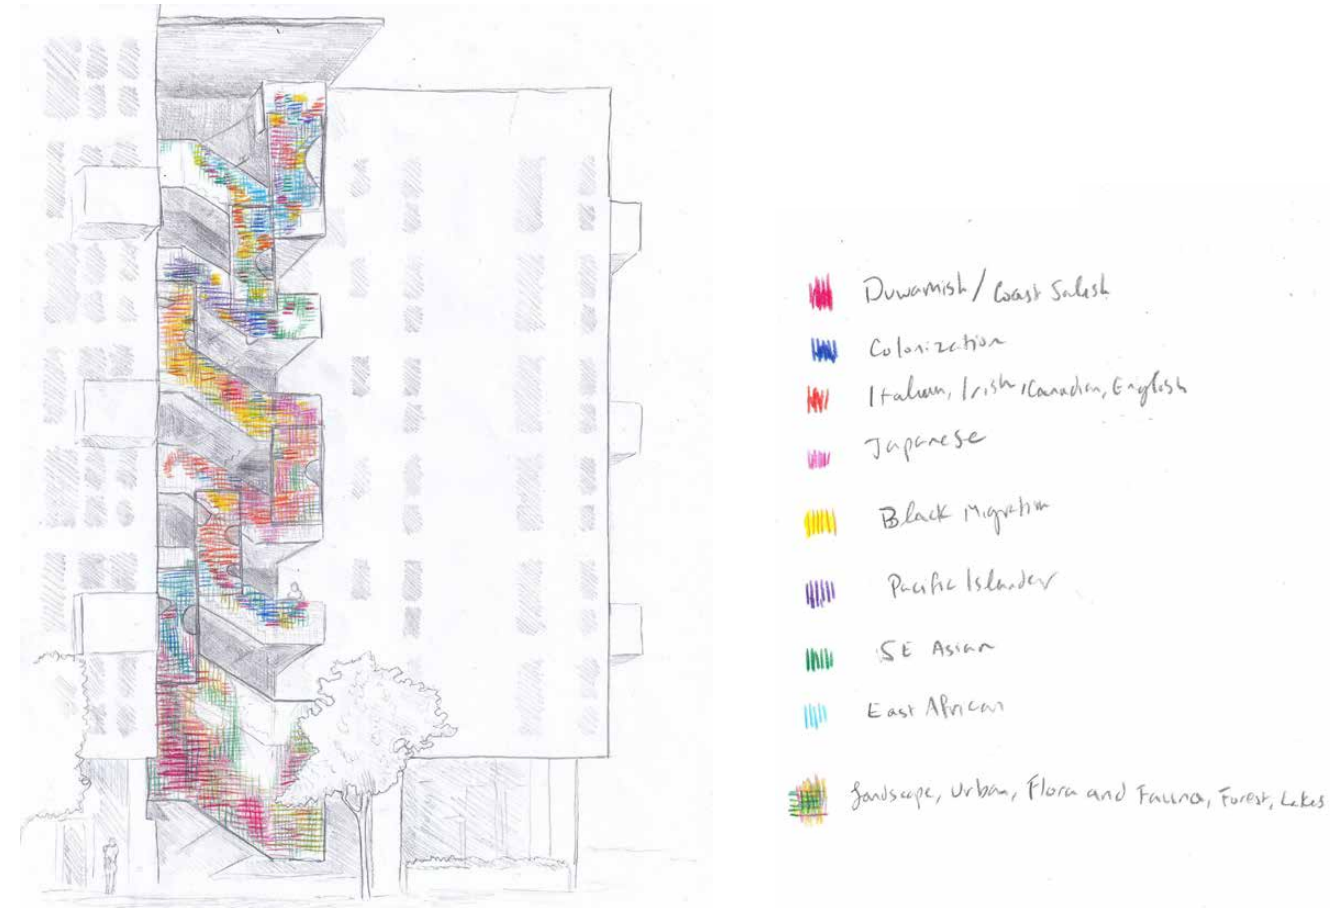 Duwamish / Coast Salish
Colonization
Italian, Irish, Canadian, English
Japanese
Black Migration
Pacific Islander
SE Asian
East African
Landscape, Urban, Flora and Fauna, Forest, Lakes